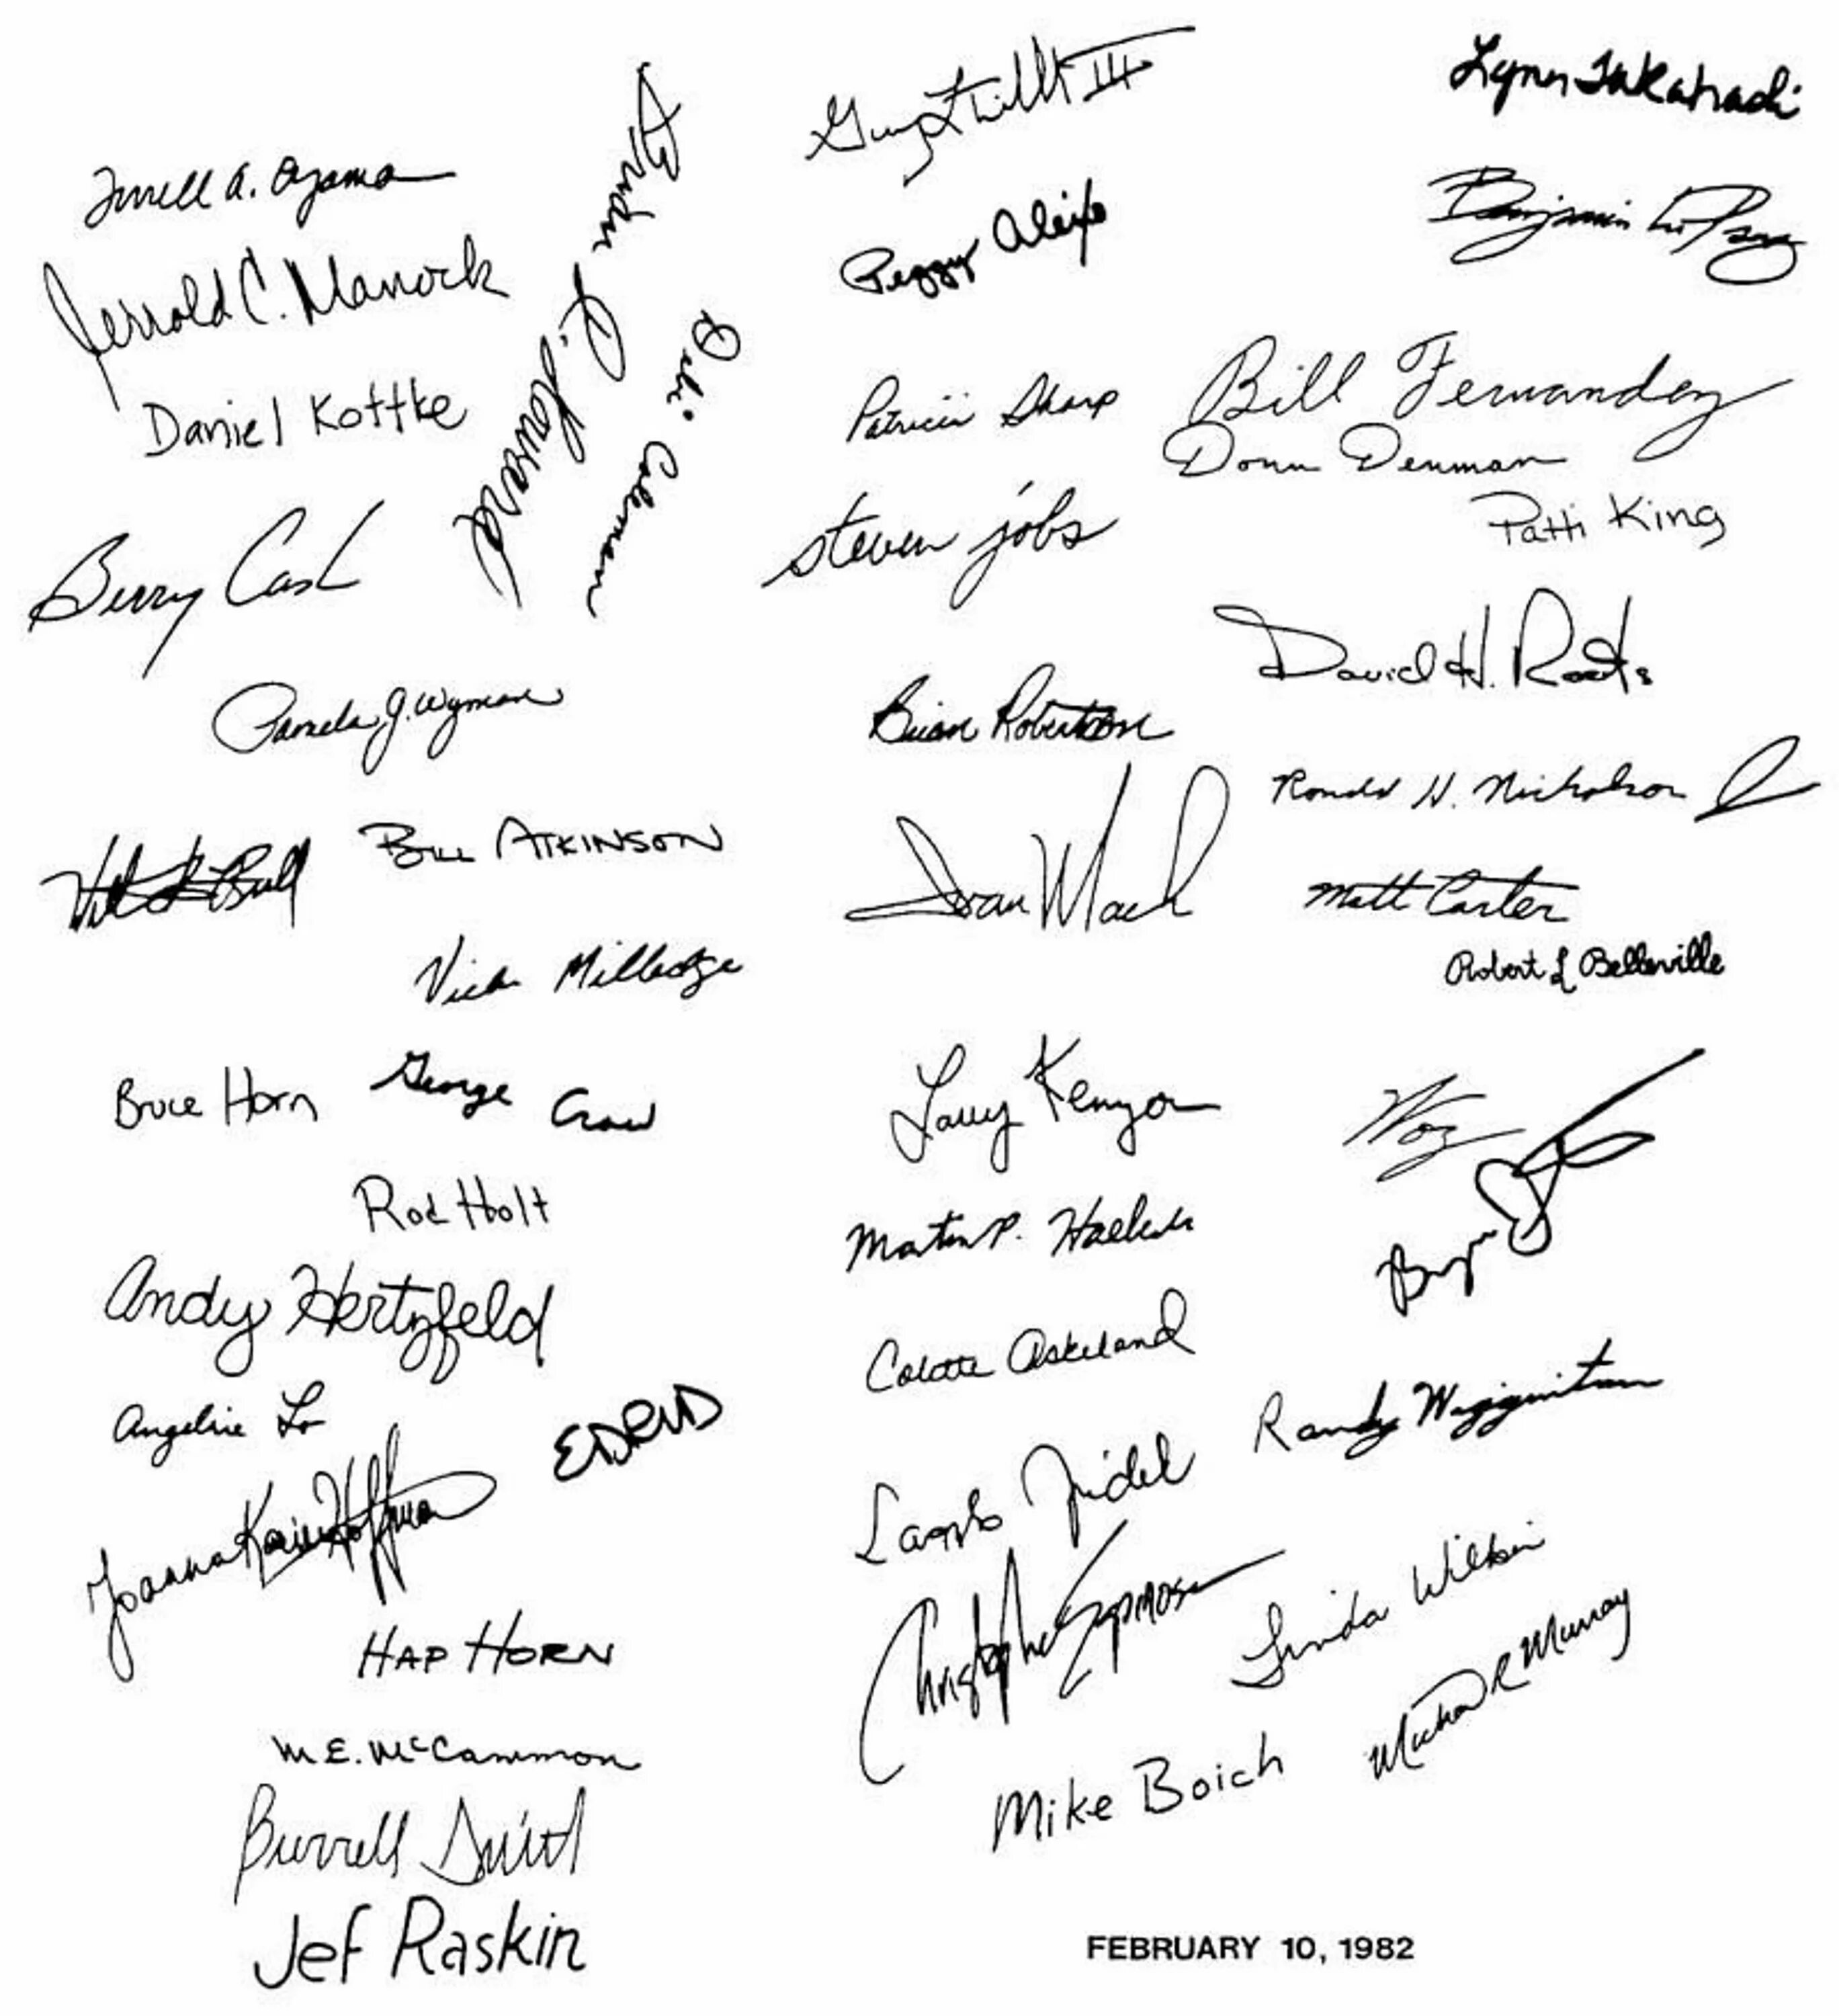 Lynn Takahashi
Terrell A. Oyama
Peggy Alexio
Benjamin Pang
Jerrold C. Manock
Brian R. Howard
Debi Coleman
Daniel Kottke
Patricia Sharp
Bill Fernandez
Donn Denman
Patti King
steven jobs
Berry Cash
Pamela J. Wyman
David H. Roots
Brian Robertson
Ronald H. Nicholson Jr
BILL ATKINSON
Ivan Mach
Matt Carter
Robert L Belleville
Vicki Milledge
Bruce Horn
George Crow
Larry Kenyon
Woz
Rod Holt
Martin P. Haeberli
Bryan
Andy Hertzfeld
Colette Askeland
Angeline Lo
Randy Wigginton
Joanna Karin Hoffman
Laszlo Zidek
HAP HORN
Christopher Espinosa
Linda Wilkin
Michael R Murray
M.E. McCammon
Mike Boich
Burrell Smith
Jef Raskin
FEBRUARY 10, 1982